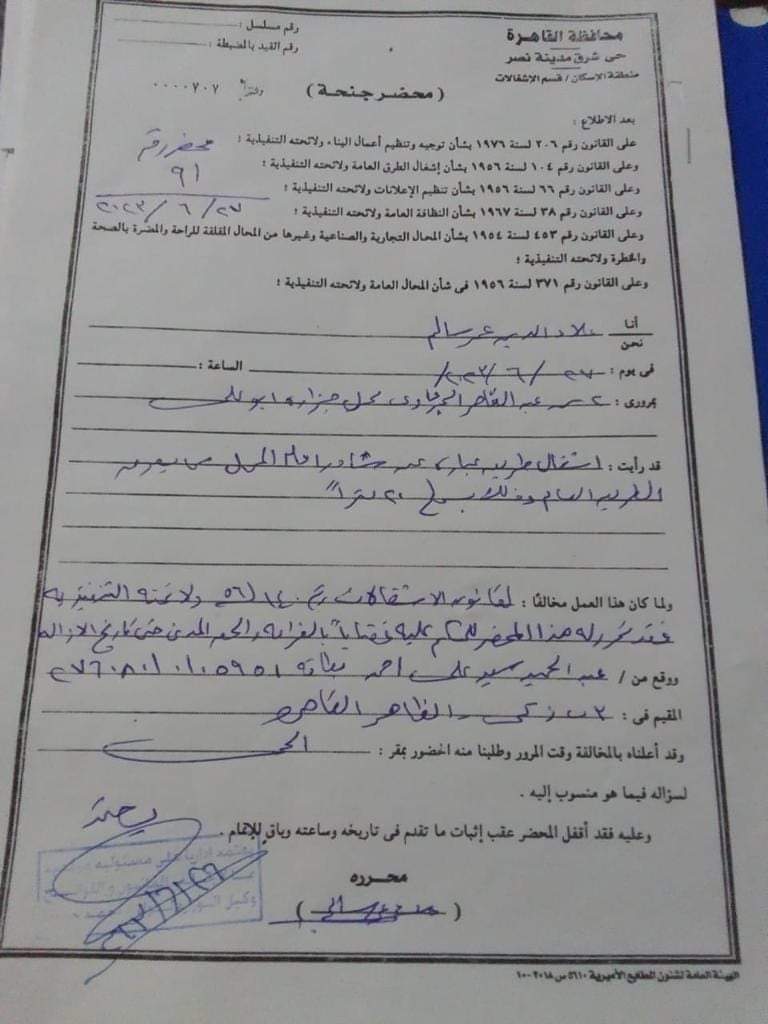 محافظة القاهرة
حى شرق مدينة نصر
منطقة الإسكان / قسم الإشغالات
رقم مسلسل :
رقم القيد بالمضبطة :
( محضر جنحة )
٠٠٠٠٧٠٧
بعد الاطلاع :
على القانون رقم ٢٠٦ لسنة ١٩٧٦ بشأن توجيه وتنظيم أعمال البناء ولائحته التنفيذية ؛
وعلى القانون رقم ١٠٤ لسنة ١٩٥٦ بشأن إشغال الطرق العامة ولائحته التنفيذية ؛
وعلى القانون رقم ٦٦ لسنة ١٩٥٦ بشأن تنظيم الإعلانات ولائحته التنفيذية ؛
وعلى القانون رقم ٣٨ لسنة ١٩٦٧ بشأن النظافة العامة ولائحته التنفيذية ؛
وعلى القانون رقم ٤٥٣ لسنة ١٩٥٤ بشأن المحال التجارية والصناعية وغيرها من المحال المقلقة للراحة والمضرة بالصحة
والخطرة ولائحته التنفيذية ؛
وعلى القانون رقم ٣٧١ لسنة ١٩٥٦ فى شأن المحال العامة ولائحته التنفيذية ؛
محضر رقم
٩١
٢٧ / ٦ / ٢٠٢٣
أنا
نحن
علاء الدين عمر سالم
فى يوم : ٢٧ / ٦ / ٢٠٢٣ الساعة :
بمرورى : ٢ عبد القاهر الجرجاوى محل جزارة ابو على
قد رأيت : اشغال طريق عبارة عن امام المحل
الطريق العام وذلك ٢٠ مترا
ولما كان هذا العمل مخالفا : لقانون الاشغالات رقم ١٤٠ / ٥٦ ولائحته التنفيذية
فقد تحرر له هذا المحضر للحكم عليه بالغرامة والحق المدنى حتى تاريخ الازالة
ووقع من / عبد الحميد سيد على احمد بطاقة
المقيم فى : ٣ الظاهر القاهرة
وقد أعلناه بالمخالفة وقت المرور وطلبنا منه الحضور بمقر : الحى
لسؤاله فيما هو منسوب إليه .
وعليه فقد أقفل المحضر عقب إثبات ما تقدم فى تاريخه وساعته وباق للإتمام .
يعتمد
محرره
الهيئة العامة لشئون المطابع الأميرية ٥٦١٠ س ٢٠١٨ - ١٠٠